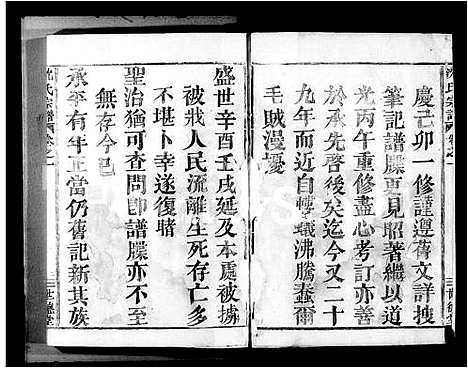 沈氏宗譜
卷之一
慶己卯一修謹遵舊文詳搜
筆記譜牒更見昭著繼以道
光丙午重修盡心考訂亦善
於承先啓後矣迄今又二十
九年而近自轉蟻沸騰蠢爾
毛賊漫擾
盛世辛酉壬戌延及本處被擄
被戕人民流離生死存亡多
不堪卜幸遂復睹
聖治猶可查問卽譜牒亦不
無存今已
承平有年正當仍舊記新其族
沈氏宗譜
卷之一